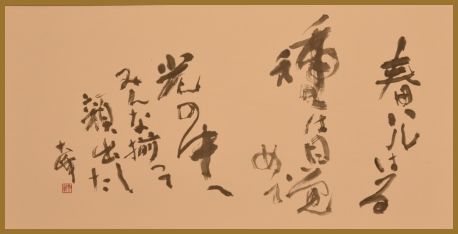 春ハルはる
種は目覚
め
光の中へ
みんな揃って
顔出した